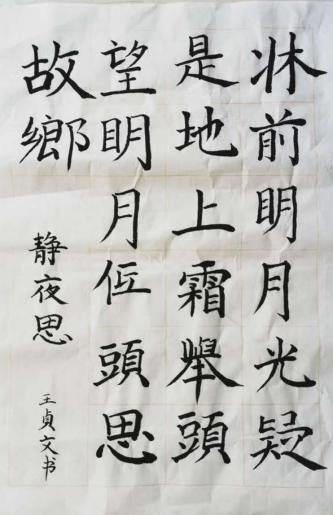 牀前明月光疑
是地上霜舉頭
望明月低頭思
故鄉
静夜思
王貞文书